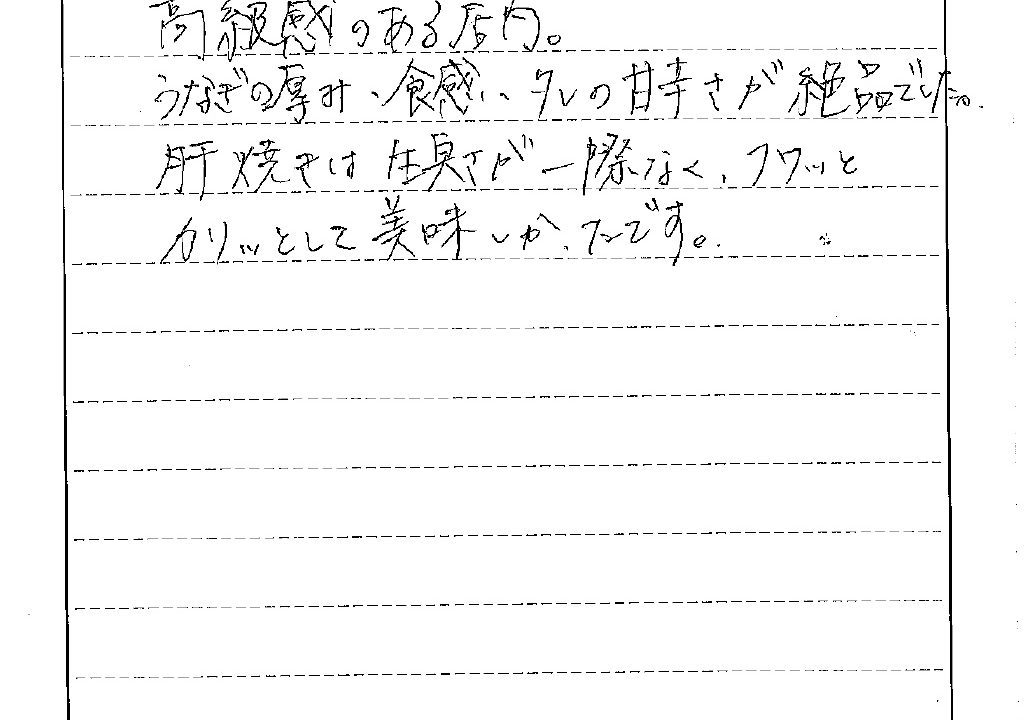 高級感のある店内。
うなぎの厚み、食感、タレの甘辛さが絶品でした。
肝焼きは生臭さが一際なく、フワッと
カリッとして美味しかったです。